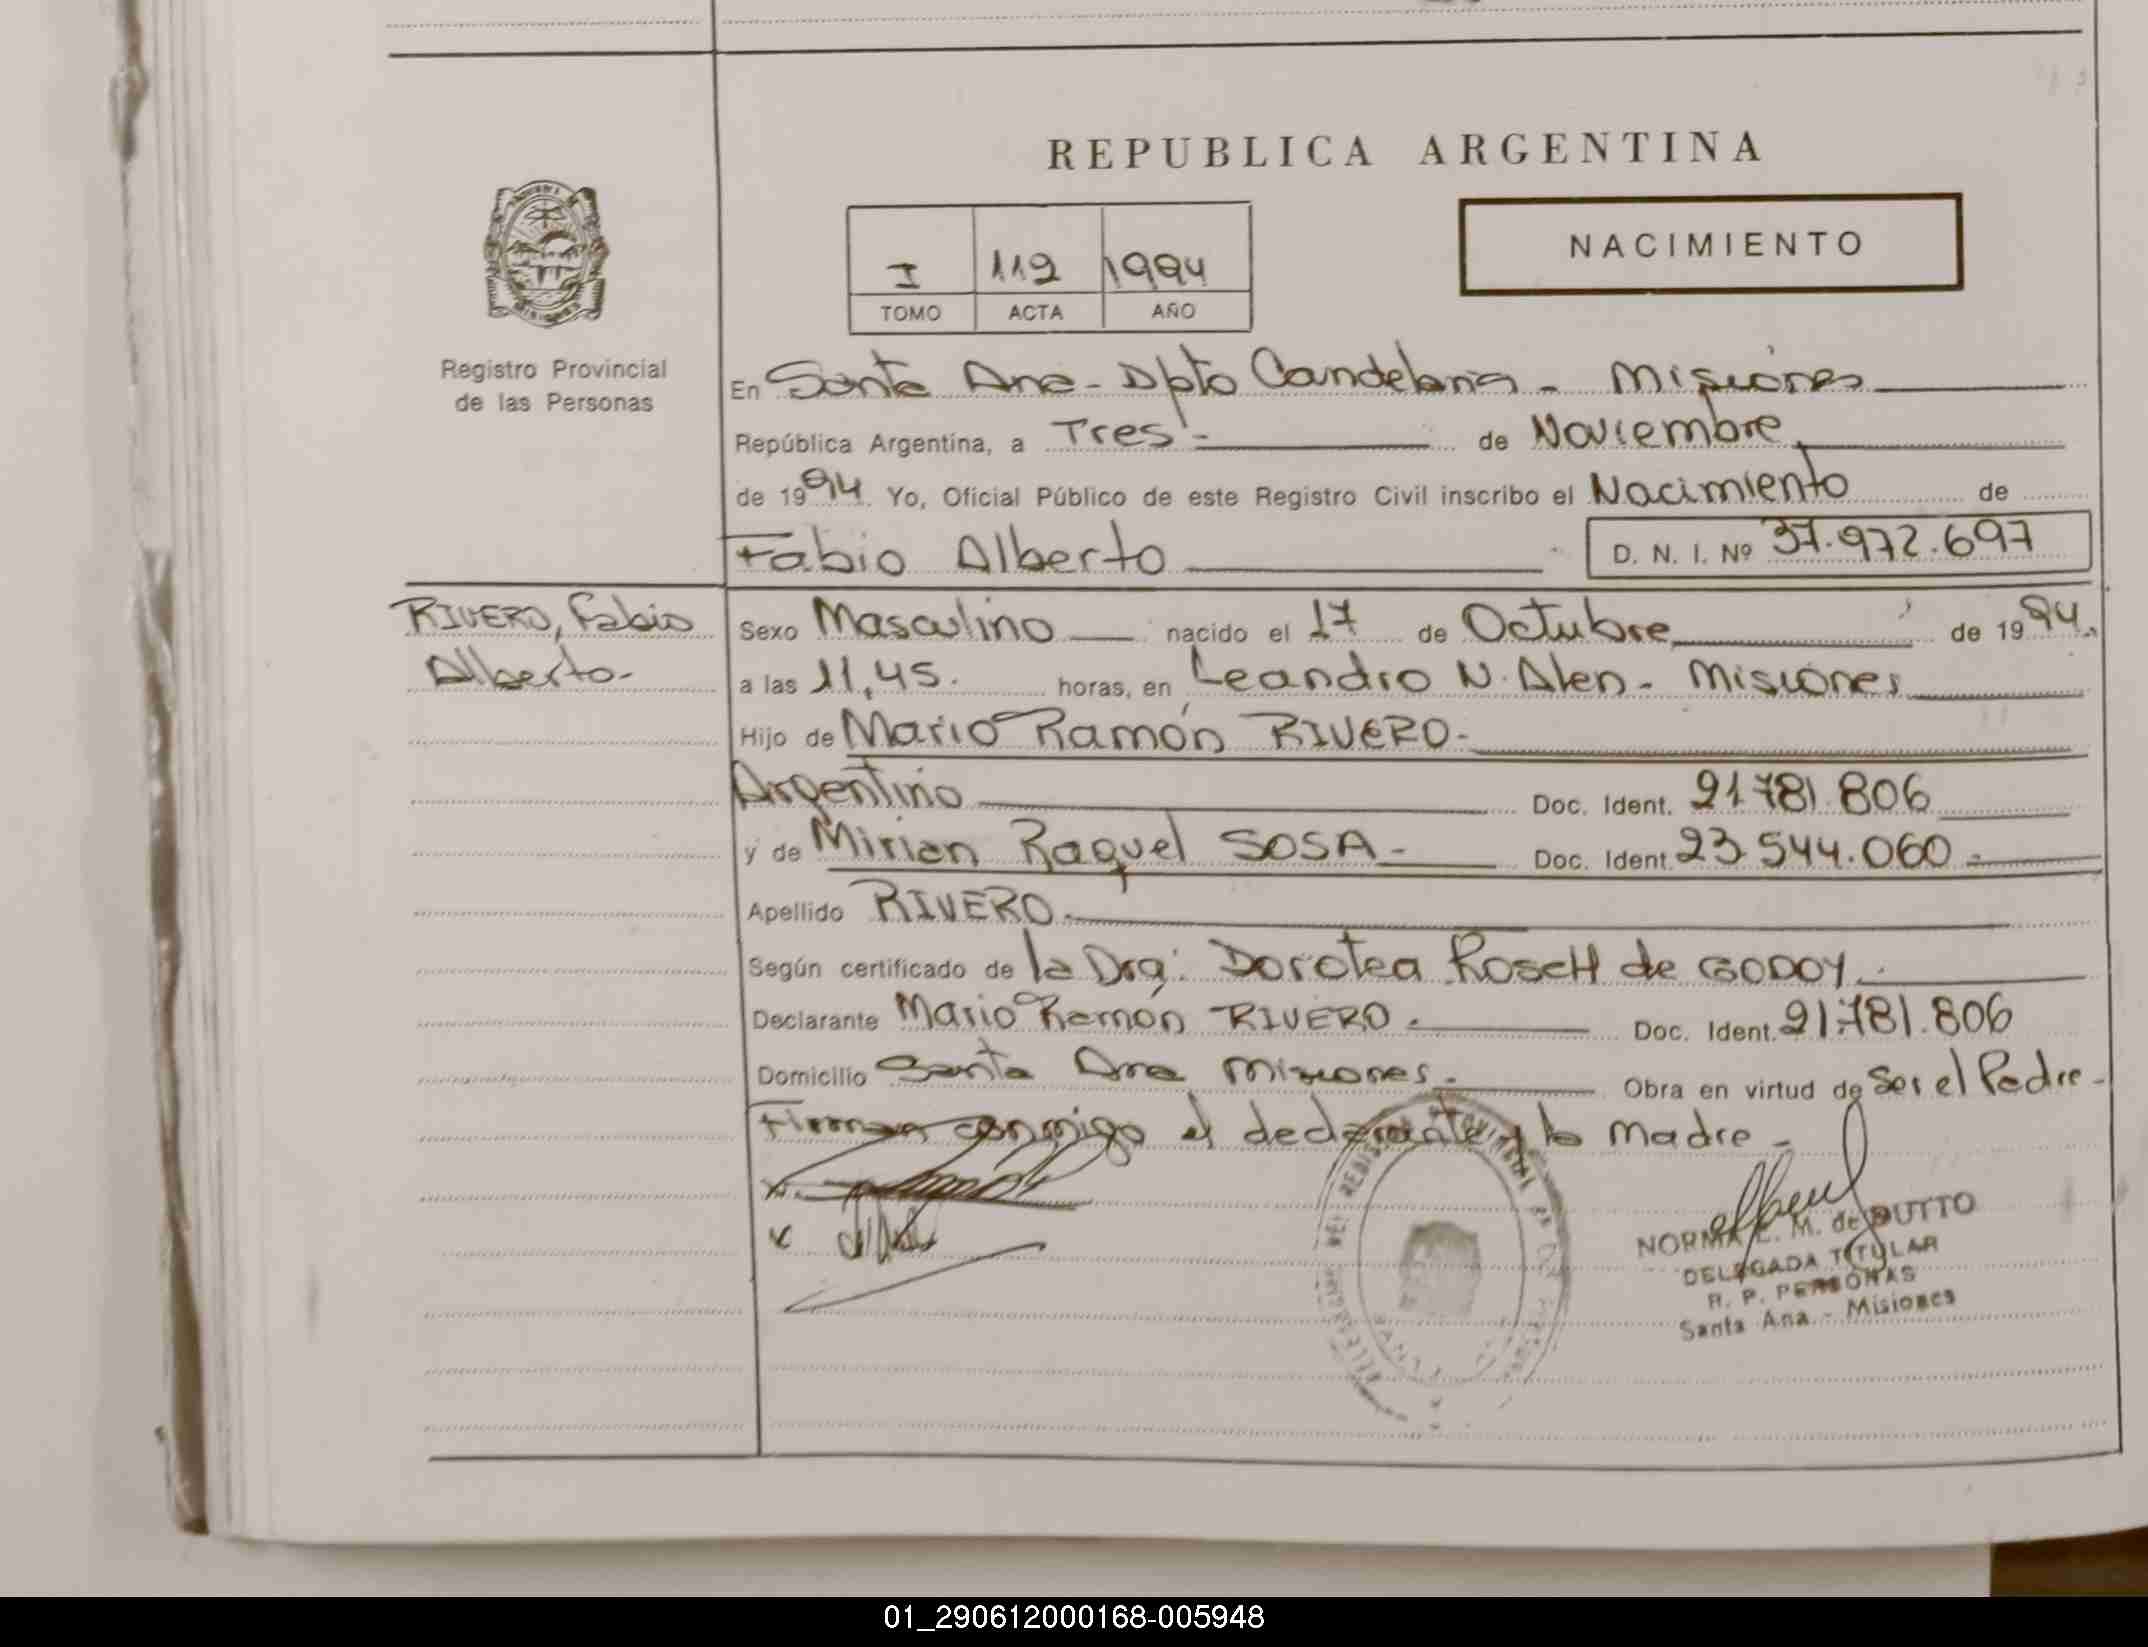 REPUBLICA ARGENTINA
NACIMIENTO
I 112 1994
TOMO ACTA AÑO
Registro Provincial
de las Personas
En Santa Ana - Dpto Candelaria - Misiones
República Argentina, a Tres - de Noviembre
de 1994 Yo, Oficial Público de este Registro Civil inscribo el Nacimiento de
Fabio Alberto D. N. I. Nº 37.972.697
RIVERO, Fabio
Alberto-
Sexo Masculino nacido el 17 de Octubre de 1994.
a las 11,45. horas, en Leandro N. Alen - Misiones
Hijo de Mario Ramón RIVERO-
Argentino Doc. Ident. 21.781.806
y de Mirian Raquel SOSA - Doc. Ident. 23.544.060 -
Apellido RIVERO-
Según certificado de la Dra: Dorotea RoscH de GODOY.
Declarante Mario Ramón RIVERO. Doc. Ident. 21.781.806
Domicilio Santa Ana Misiones. Obra en virtud de Ser el Padre-
Firman conmigo el declarante y la Madre -
NORMA L. M. de DUTTO
DELEGADA TITULAR
R. P. PERSONAS
Santa Ana - Misiones
01_290612000168-005948